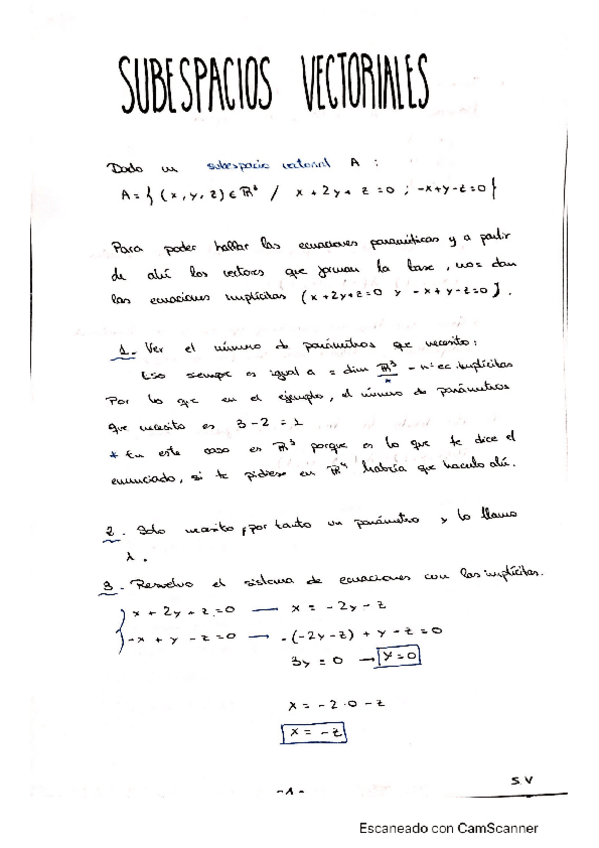 SUBESPACIOS VECTORIALES
Dado un subespacio vectorial A :
A = { (x, y, z) ∈ ℝ³ / x + 2y + z = 0 ; -x+y-z=0 }
Para poder hallar las ecuaciones paramétricas y a partir
de ahí los vectores que forman la base, nos dan
las ecuaciones implícitas (x+2y+z=0 y -x+y-z=0).
1.- Ver el número de parámetros que necesito:
Eso siempre es igual a = dim ℝ³ - nº ec. implícitas
*
Por lo que en el ejemplo, el número de parámetros
que necesito es 3-2 = 1
* En este caso es ℝ³ porque es lo que te dice el
enunciado, si te pidiese en ℝ⁴ habría que hacerlo ahí.
2.- Solo necesito, por tanto un parámetro y lo llamo
λ.
3.- Resuelvo el sistema de ecuaciones con las implícitas.
x + 2y + z = 0 — x = -2y - z
-x + y - z = 0 → -(-2y-z) + y - z = 0
3y = 0 → y=0
x = -2·0 - z
x = -z
S.V
-1-
Escaneado con CamScanner